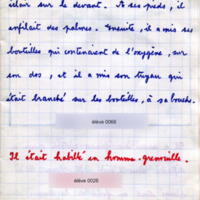 éclair sur le devant. A ses pieds, il
enfilait des palmes. Ensuite, il a mis ses
bouteilles qui contenaient de l'oxygène, sur
son dos, et il a mis son tuyau qui
était branché sur les bouteilles, à sa bouche.
élève 0066
Il était habillé en homme-grenouille.
élève 0026